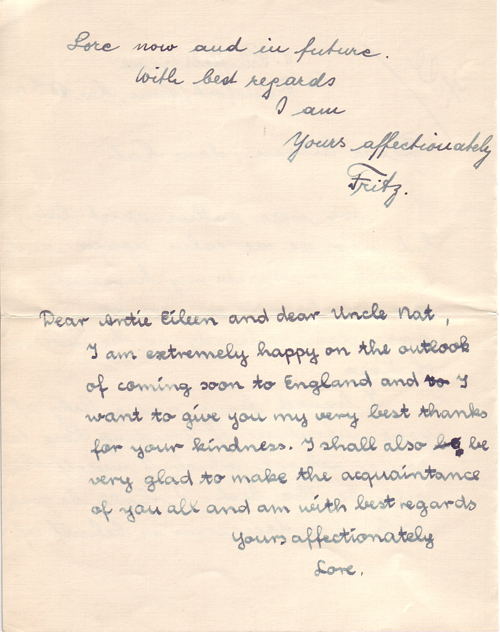 Lore now and in future.
With best regards
I am
Yours affectionately
Fritz.
Dear Antie Eileen and dear Uncle Nat,
I am extremely happy on the outlook
of coming soon to England and to I
want to give you my very best thanks
for your kindness. I shall also be be
very glad to make the acquaintance
of you all and am with best regards
Yours affectionately
Lore.